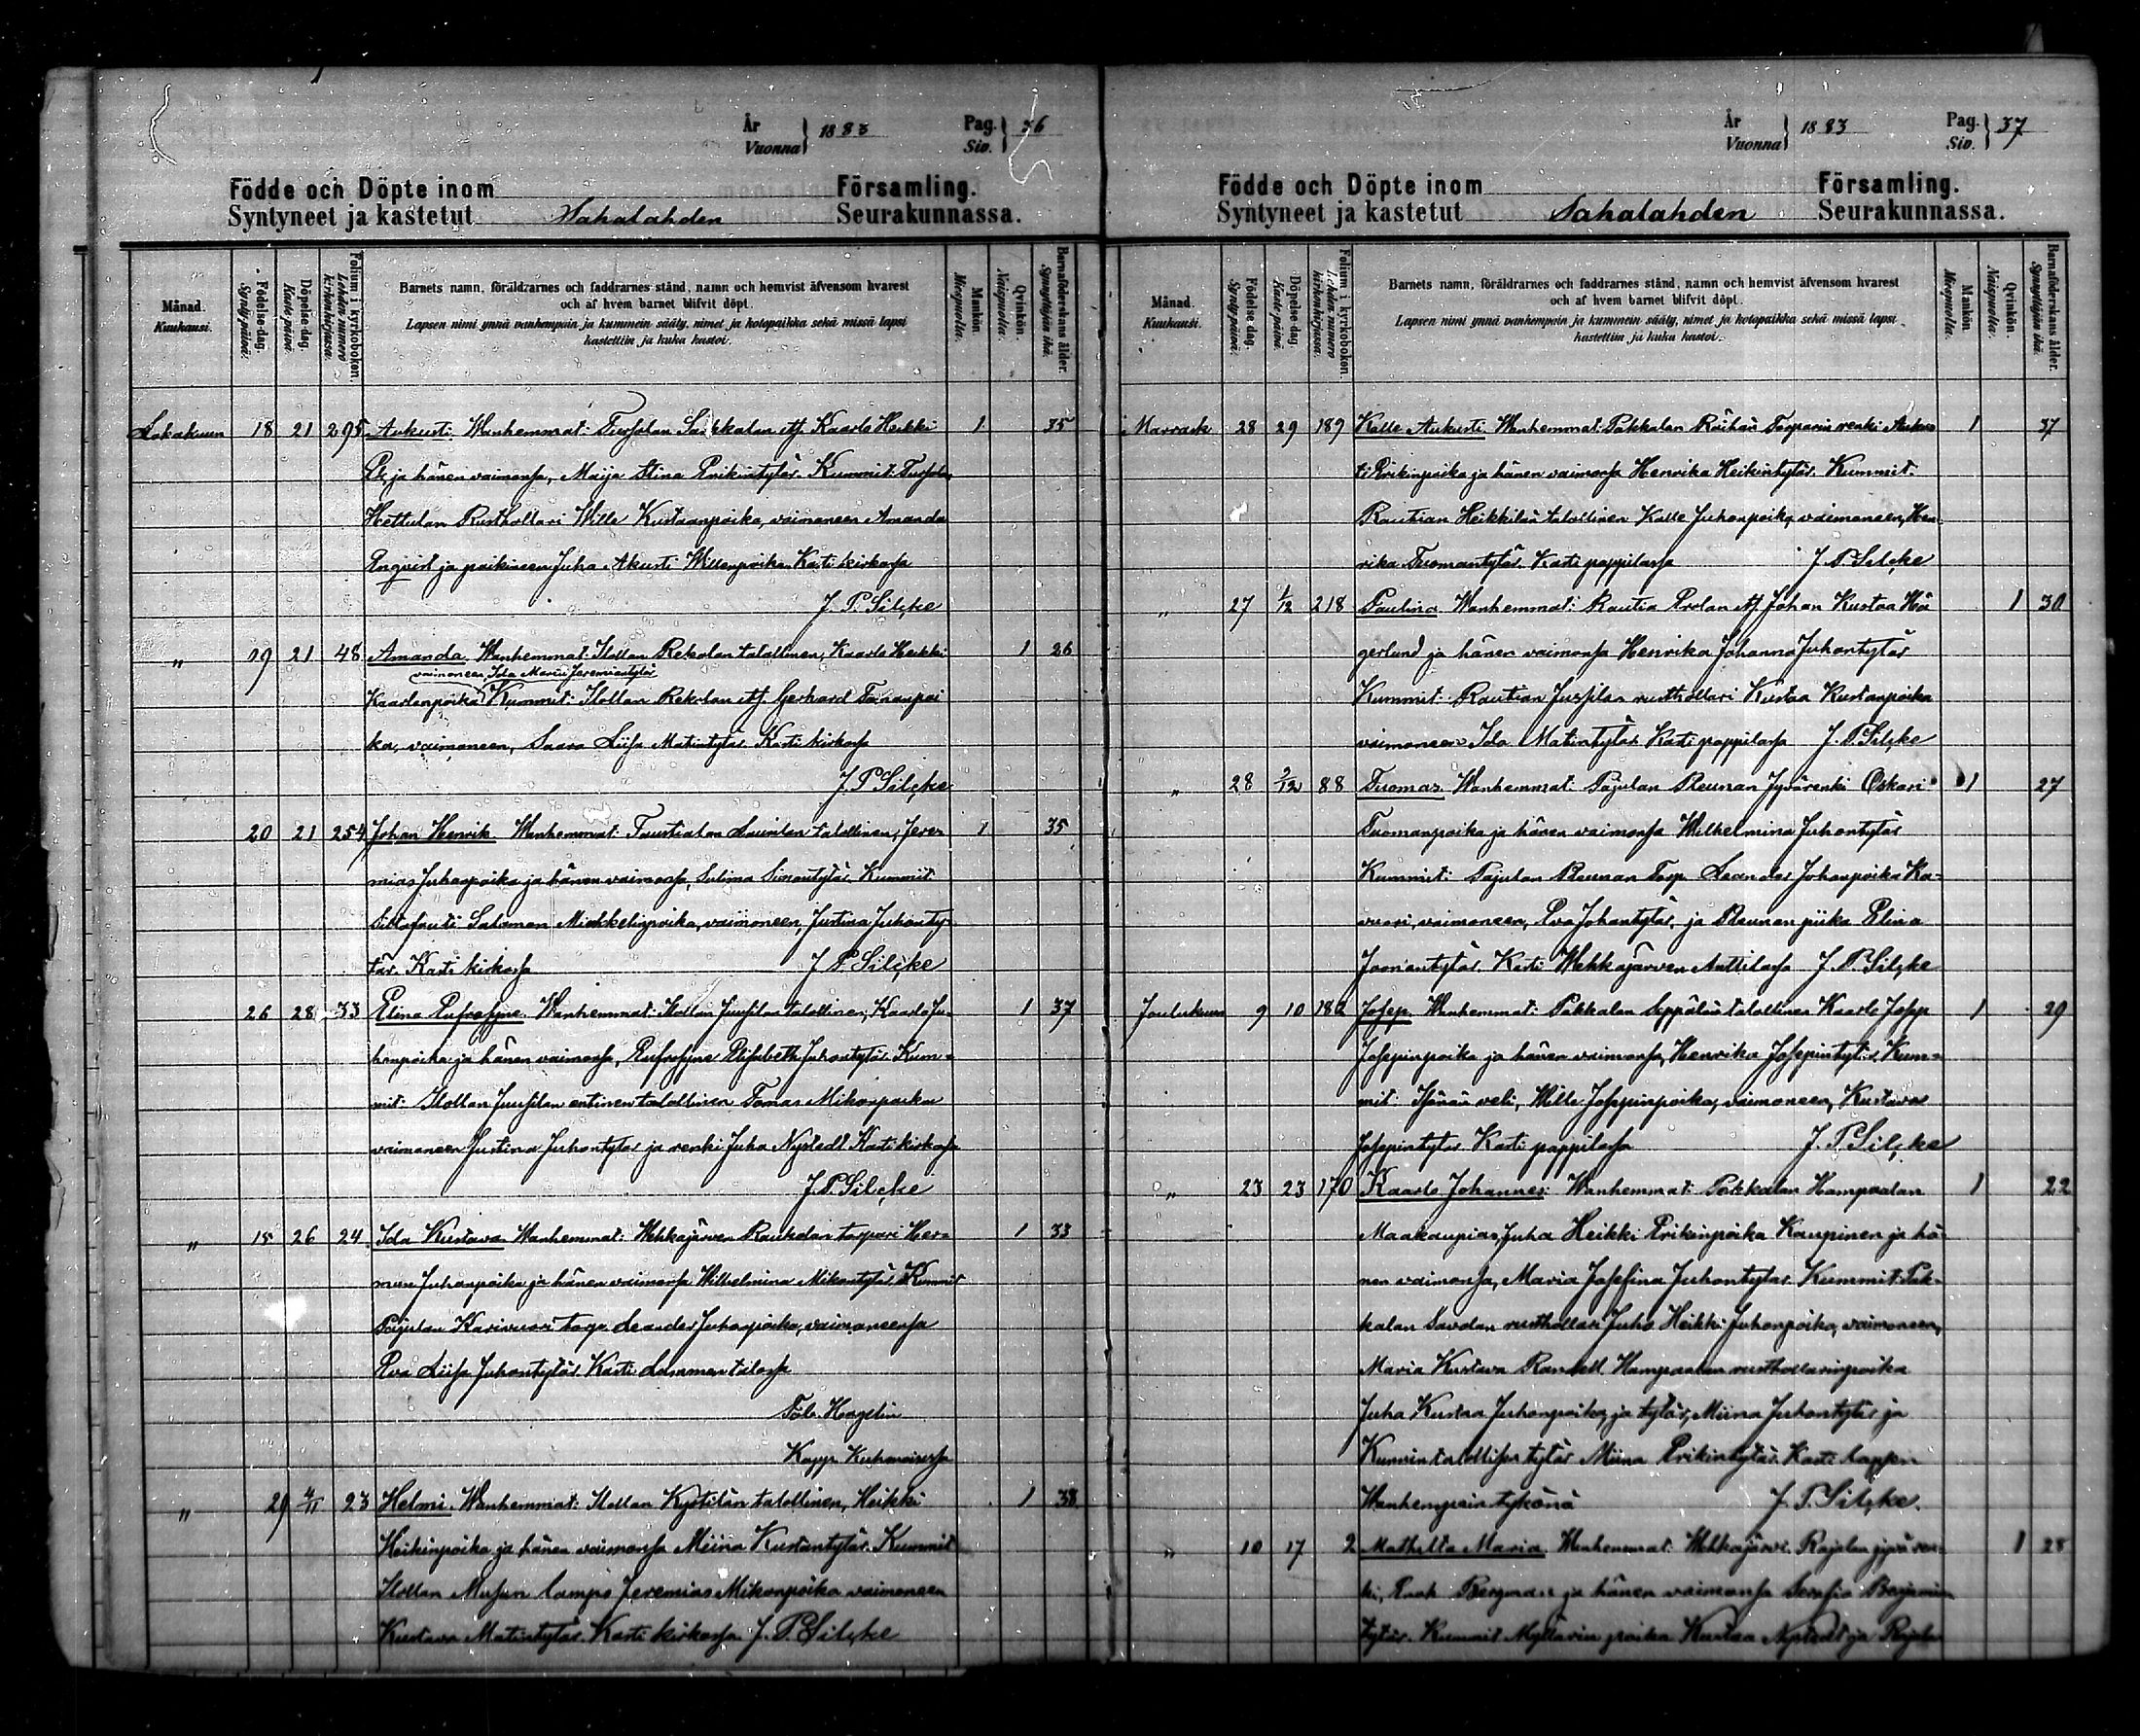 År
Vuonna } 1883
Pag.
Siv. } 36
Födde och Döpte inom Församling.
Syntyneet ja kastetut Sahalahden Seurakunnassa.
Månad. Kuukausi.
Födelse-dag. Synty-päivä.
Döpelse-dag. Kaste-päivä.
Folium i kyrkoboken. Lehden numero kirkonkirjassa.
Barnets namn, föräldrarnes och faddrarnes stånd, namn och hemvist äfvensom hvarest
och af hvem barnet blifvit döpt.
Lapsen nimi ynnä vanhempain ja kummein sääty, nimet ja kotopaikka sekä missä lapsi
kastettiin ja kuka kastoi.
Mankön. Miespuolta.
Qvinkön. Naispuolta.
Barnaföderskans ålder. Synnyttäjän ikä.
Lokakuun 18 21 295 Aukusti Wanhemmat: Kaarle Heikki 1 35
ja hänen vaimonsa, Maija Stina Erikintytär Kummit:
Hettulan Rusthollari Wille Kustaanpoika, vaimoneen Amanda
Enqvist ja poikineen Juha Akusti Willenpoika Kasti kirkossa
J. P. Silçke
" 19 21 48 Amanda Wanhemmat: Rekolan talollinen, Kaarle Heikki 1 26
vaimoneen Ida Maria Jeremiantytär
Kaarlenpoika Kummit: Rekolan Gerhard
ka, vaimoneen, Saara Liisa Matintytär Kasti kirkossa
J P Silçke
20 21 254 Johan Henrik Wanhemmat: Laurilan talollinen, Jere- 1 35
mias Juhanpoika ja hänen vaimonsa, Selima Simontytär Kummit
Salomon Mikkelinpoika, vaimoneen, Justina Juhanty-
tär Kasti kirkossa J P Silçke
26 28 33 Elina Eufrosyne Wanhemmat: Juusilan talollinen, Kaarle Ju- 1 37
hanpoika ja hänen vaimonsa, Eufrosyne Elisabeth Juhontytär Kum-
mit: Juusilan entinen talollinen Tomas Mikonpoika
vaimoneen Justina Juhontytär ja renki Juha Nystedt Kasti kirkossa
J P Silçke
" 15 26 24 Ida Kustava Wanhemmat: Wehkajärven Raukolan torpari Her- 1 33
man Juhanpoika ja hänen vaimonsa Wilhelmina Mikontytär Kummit
Pajulan Karivuori torp. Leander Juhanpoika, vaimoneensa
Eva Liisa Juhontytär Kasti talossa
Hagelin
Kapp. Kuhmoisissa
" 29 4/11 23 Helmi Wanhemmat: Kystilän talollinen, Heikki 1 38
Heikinpoika ja hänen vaimonsa Miina Kustantytär. Kummit
Jeremias Mikonpoika vaimoneen
Kustava Matintytär. Kasti kirkossa J. P. Silçke
År
Vuonna } 1883
Pag.
Siv. } 37
Födde och Döpte inom Församling.
Syntyneet ja kastetut Sahalahden Seurakunnassa.
Månad. Kuukausi.
Födelse dag. Synty-päivä.
Döpelse dag. Kaste päivä.
Folium i kyrkoboken. Lehden numero kirkonkirjassa.
Barnets namn, föräldrarnes och faddrarnes stånd, namn och hemvist äfvensom hvarest
och af hvem barnet blifvit döpt.
Lapsen nimi ynnä vanhempain ja kummein sääty, nimet ja kotopaikka sekä missä lapsi
kastettiin ja kuka kastoi.
Mankön. Miespuolta.
Qvinkön. Naispuolta.
Barnaföderskans ålder. Synnyttäjän ikä.
Marrask 28 29 189 Kalle Aukusti Wanhemmat: Pakkalan renki Aukus 1 37
ti Erikinpoika ja hänen vaimonsa Henrika Heikintytär. Kummit:
Rautian Heikkilän talollinen Kalle Juhonpoika vaimoneen, Hen-
rika Tuomantytär Kasti pappilassa J. P. Silçke
" 27 1/12 218 Paulina Wanhemmat: Rautia Johan Kustaa Hä 1 30
gerlund ja hänen vaimonsa Henrika Johanna Juhontytär
Kummit: Rautian Jussilan rusthollari Kustaa Kustanpoika
vaimoneen Ida Matintytär Kasti pappilassa J. P. Silçke
" 28 2/12 88 Tuomas Wanhemmat: Pajulan Reunan Jyvärenki Oskari 1 27
Tuomanpoika ja hänen vaimonsa Wilhelmina Juhontytär
Kummit: Pajulan Reunan Torp. Leander Johanpoika Ka-
vuori, vaimoneen, Eva Johantytär, ja Reunan piika Elina
Joonantytär. Kasti Wehkajärven Anttilassa J. P. Silçke
Joulukuun 9 10 182 Josep Wanhemmat: Pakkalan Seppälän talollinen Kaarle Josep 1 29
Josepinpoika ja hänen vaimonsa, Henrika Josepintytär. Kum-
mit: Isänän veli, Wille Josepinpoika, vaimoneen, Kustava
Josepintytär Kasti pappilassa J. P. Silçke
" 23 23 170 Kaarlo Johannes: Wanhemmat: Pakkalan Hampoalan 1 22
Maakaupias, Juha Heikki Erikinpoika Kaupinen ja hä
nen vaimonsa, Maria Josefina Juhontytär Kummit: Pak-
kalan Savolan rusthollari Juho Heikki Juhonpoika, vaimoneen,
Maria Kustava Hampoalan rusthollarinpoika
Juha Kustaa Juhonpoika, ja tytär, Miina Juhontytär ja
talollisen tytär Miina Erikintytär. Kasti lapsen
Wanhempain tykönä J. P. Silçke.
" 10 17 2 Mathilta Maria Wanhemmat: Wehkajärvi Rajalan jyvären- 1 28
ki, Bergman ja hänen vaimonsa Serafia Benjamin
tytär. Kummit Myllärin poika Kustaa Nystedt ja Rajala